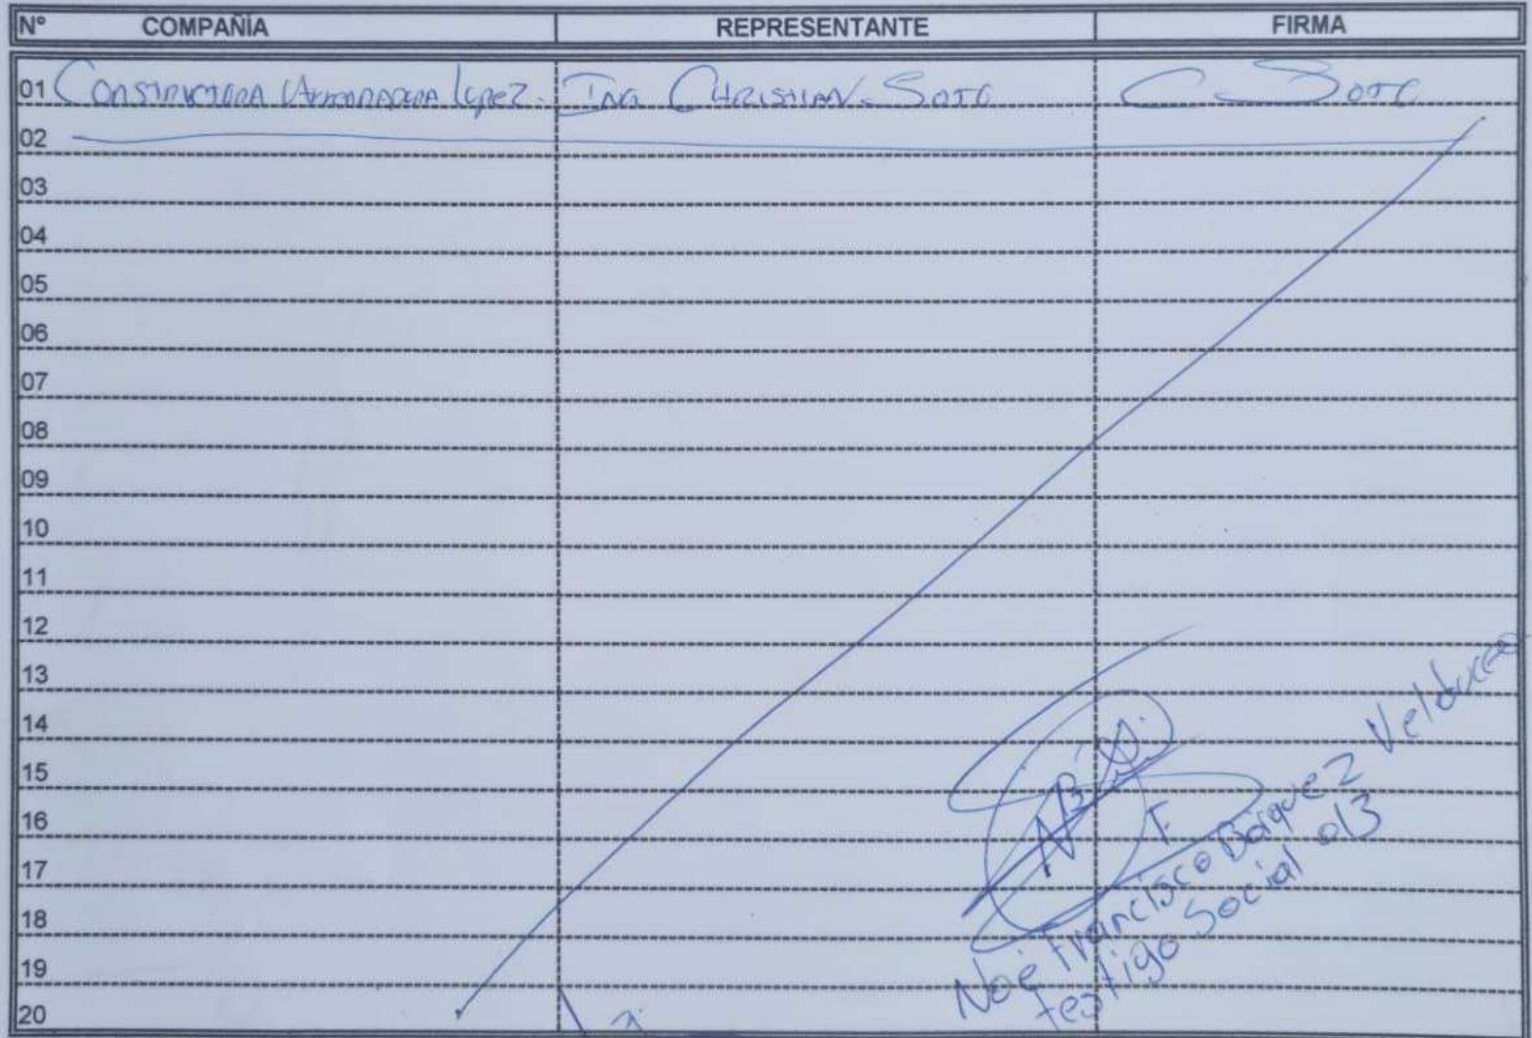 N° COMPAÑÍA REPRESENTANTE FIRMA
01 CONSTRUCTORA LOPEZ. ING. CHRISTIAN. SOTO C SOTO
02
03
04
05
06
07
08
09
10
11
12
13
14
15
16
17
18
19
20
Noé Francisco Bórquez
testigo Social 013